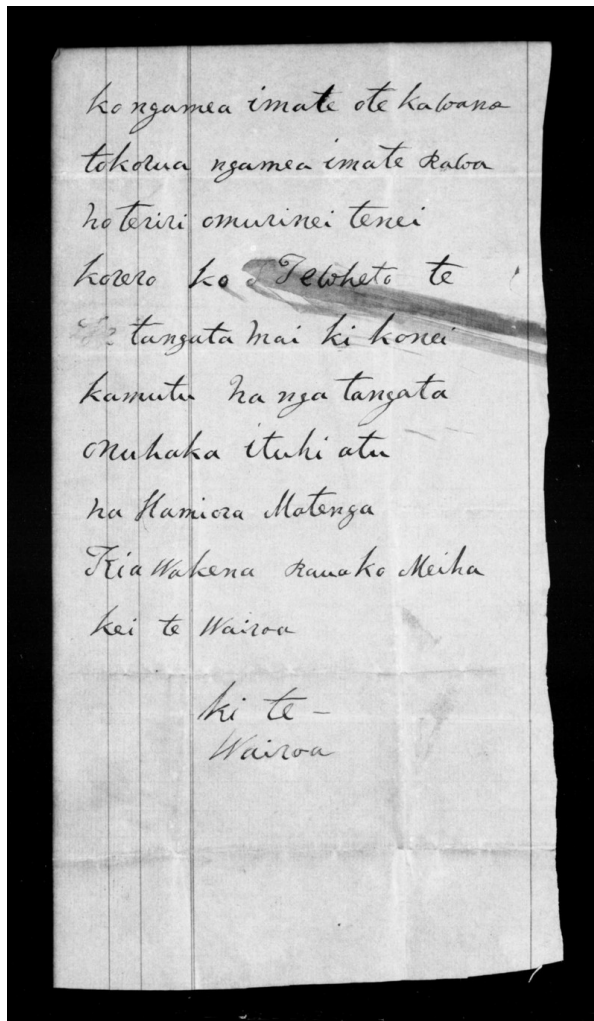 ko ngamea imate ote kawana
tokorua ngamea imate rawa
ho teriri omurinei tenei
korero ko Tewheto te
tangata mai ki konei
kamutu na nga tangata
onuhaka ituhi atu
na Hamiora Matenga
Kia Wakena rauako Meiha
kei te Wairoa
ki te –
Wairoa